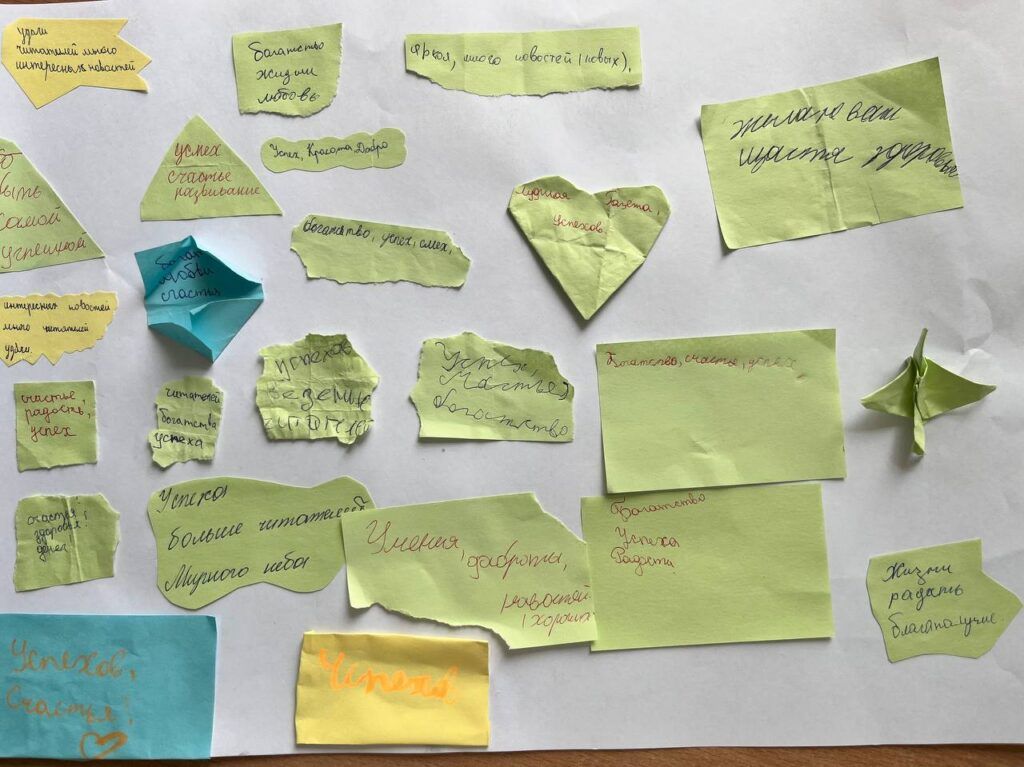 удачи
читателей много
интересных новостей
богатство
жизни
любовь
яркая, много новостей (новых),
Желаю вам
щастя здоровье
успех
счастье
развивание
Успех, Красота Добро
быть
самой
успешной
Газета,
Успехов.
богатство, успех, смех,
любви
счастья
интересных новостей
много читателей
удачи.
успехов
везения
Успех,
Счастье,
богатство
Богатство, счастье, успех,
счастье,
радость,
успех
читателей
богатства
успеха
счастья!
здоровья!
денег
Успеха
больше читателей
Мирного неба
Умения,
доброты,
новостей
(хороших
Богатство
Успеха
Радости
Жизни
радать
благаполучие
Успехов,
Счастья!
Успехов